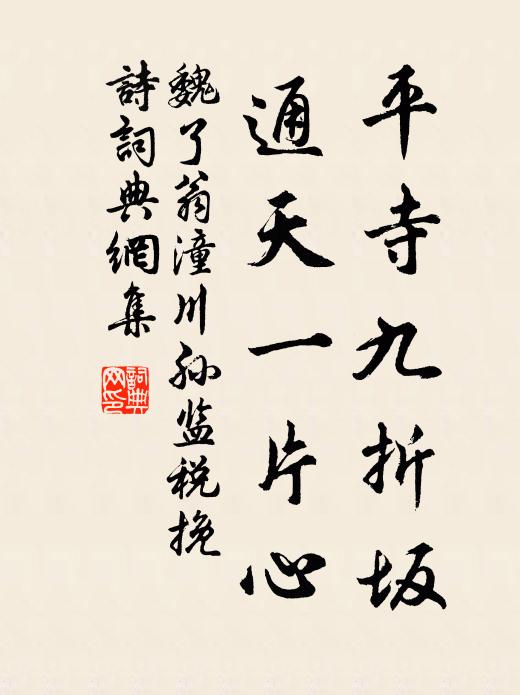 平寺九折坂
通天一片心
魏了翁潼川孙监税挽
詩詞典網集
詞典网印